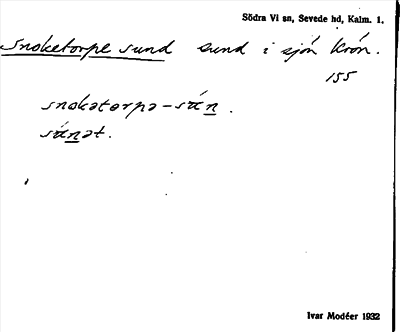 Södra Vi sn, Sevede hd, Kalm. l.
Snoketorpe sund sund i sjön Krön.
155
snokətorpə-sún.
súnət.
Ivar Modéer 1932